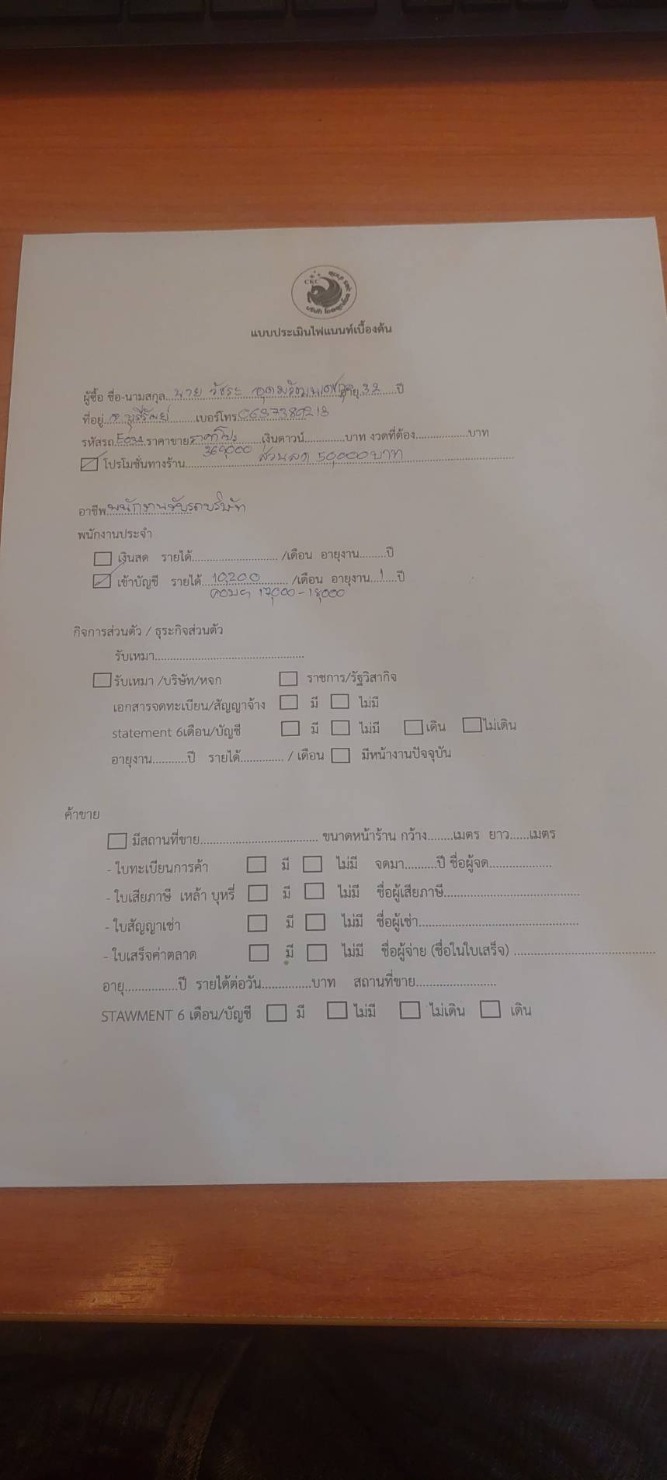 CKC
แบบประเมินไฟแนนท์เบื้องต้น
ผู้ซื้อ ชื่อ-นามสกุล นาย วัชระ อายุ 32 ปี
ที่อยู่ จ.บุรีรัมย์ เบอร์โทร
รหัสรถ ราคาขาย เงินดาวน์ บาท งวดที่ต้อง บาท
369,000 ส่วนลด 50,000 บาท
โปรโมชั่นทางร้าน
อาชีพ พนักงานขับรถบริษัท
พนักงานประจำ
เงินสด รายได้ /เดือน อายุงาน ปี
เข้าบัญชี รายได้ 10,200 /เดือน อายุงาน 1 ปี
17,000 - 18,000
กิจการส่วนตัว / ธุรกิจส่วนตัว
รับเหมา
รับเหมา /บริษัท/หจก ราชการ/รัฐวิสากิจ
เอกสารจดทะเบียน/สัญญาจ้าง มี ไม่มี
statement 6เดือน/บัญชี มี ไม่มี เดิน ไม่เดิน
อายุงาน ปี รายได้ / เดือน มีหน้างานปัจจุบัน
ค้าขาย
มีสถานที่ขาย ขนาดหน้าร้าน กว้าง เมตร ยาว เมตร
- ใบทะเบียนการค้า มี ไม่มี จดมา ปี ชื่อผู้จด
- ใบเสียภาษี เหล้า บุหรี่ มี ไม่มี ชื่อผู้เสียภาษี
- ใบสัญญาเช่า มี ไม่มี ชื่อผู้เช่า
- ใบเสร็จค่าตลาด มี ไม่มี ชื่อผู้จ่าย (ชื่อในใบเสร็จ)
อายุ ปี รายได้ต่อวัน บาท สถานที่ขาย
STAWMENT 6 เดือน/บัญชี มี ไม่มี ไม่เดิน เดิน